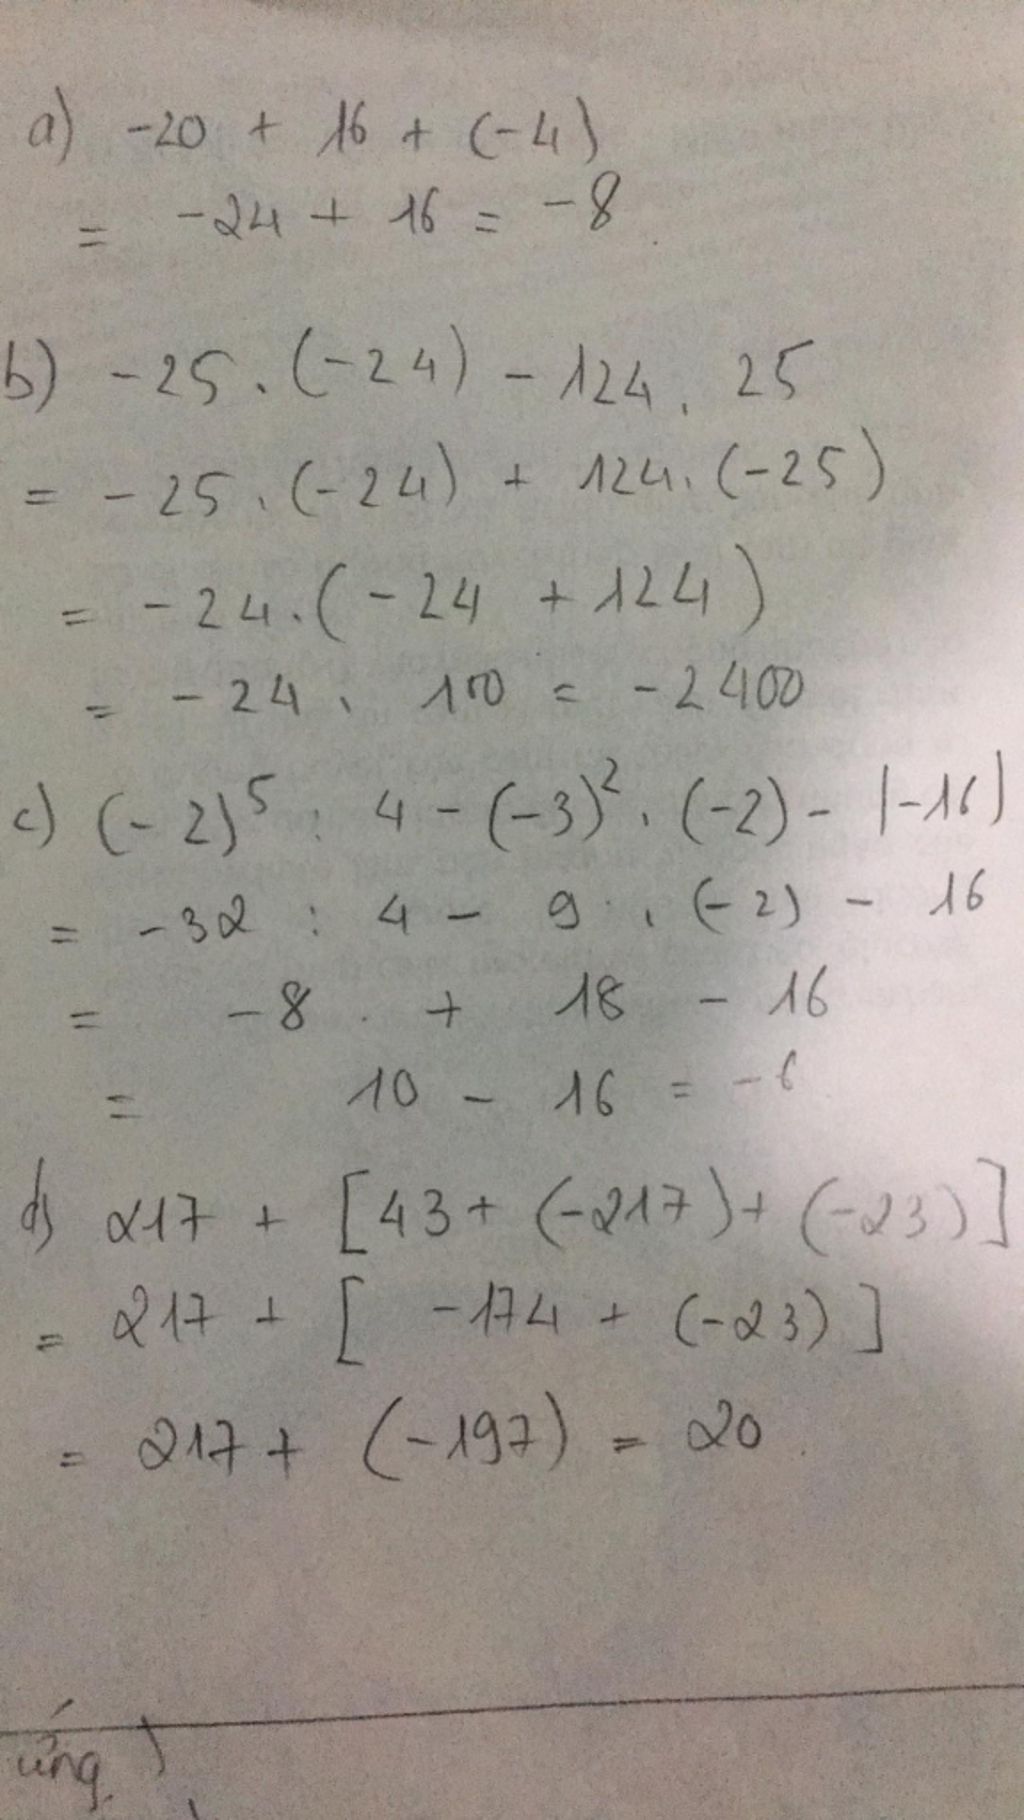 a) -20 + 16 + (-4)
= -24 + 16 = -8
b) -25 . (-24) - 124 . 25
= -25 . (-24) + 124 . (-25)
= -24 . (-24 + 124)
= -24 . 100 = -2400
c) (-2)⁵ : 4 - (-3)² . (-2) - |-16|
= -32 : 4 - 9 . (-2) - 16
= -8 + 18 - 16
= 10 - 16 = -6
d) 217 + [43 + (-217) + (-23)]
= 217 + [ -174 + (-23) ]
= 217 + (-197) = 20
ứng )